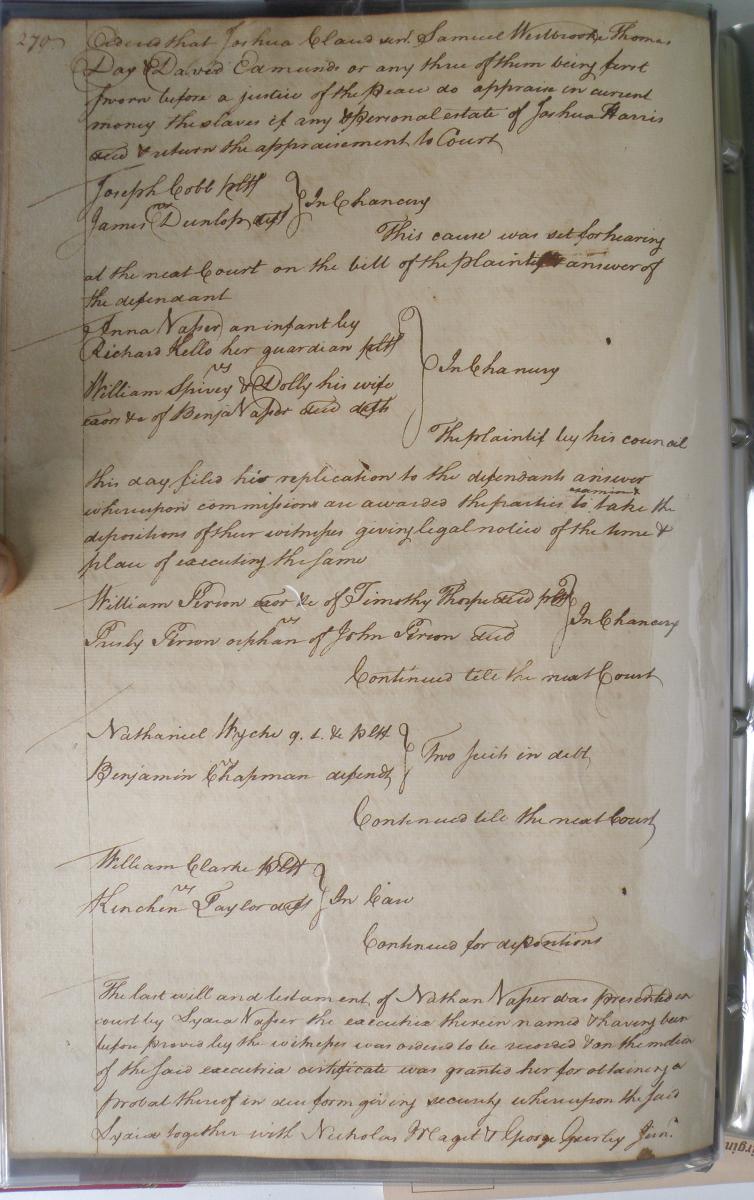 270
Ordered that Joshua Claud senr. Samuel Westbrooke Thomas
Day & David Edmunds or any three of them being first
sworn before a justice of the peace do appraise in current
money the slaves if any & personal estate of Joshua Harris
decd & return the appraisement to Court
Joseph Cobb pltf
vs
James Dunlop deft
In Chancery
This cause was set for hearing
at the next Court on the bill of the plaintif & answer of
the defendant
Anna Vasser an infant by
Richard Kello her guardian pltf
vs
William Spivey & Dolly his wife
exors &c of Benja Vasser decd defts
In Chancery
The plaintif by his council
this day filed his replication to the defendants answer
whereupon commissions are awarded the parties to examine & take the
depositions of their witnesses giving legal notice of the time &
place of executing the same
William Person exor &c of Timothy Thorpe decd pltf
vs
Presly Person orphan of John Person decd
In Chancery
Continued till the next Court
Nathaniel Wyche q. t. &c pltf
vs
Benjamin Chapman defendt
Two suits in debt
Continued till the next Court
William Clarke pltf
vs
Kinchen Taylor deft
In Case
Continued for depositions
The last will and testament of Nathan Vasser was presented in
court by Lydia Vasser the executrix therein named & having been
before proved by the witnesses was ordered to be recorded & on the motion
of the said executrix certificate was granted her for obtaining a
probat thereof in due form giving security whereupon the said
Lydia together with Nicholas Maget & George Gurley Junr.